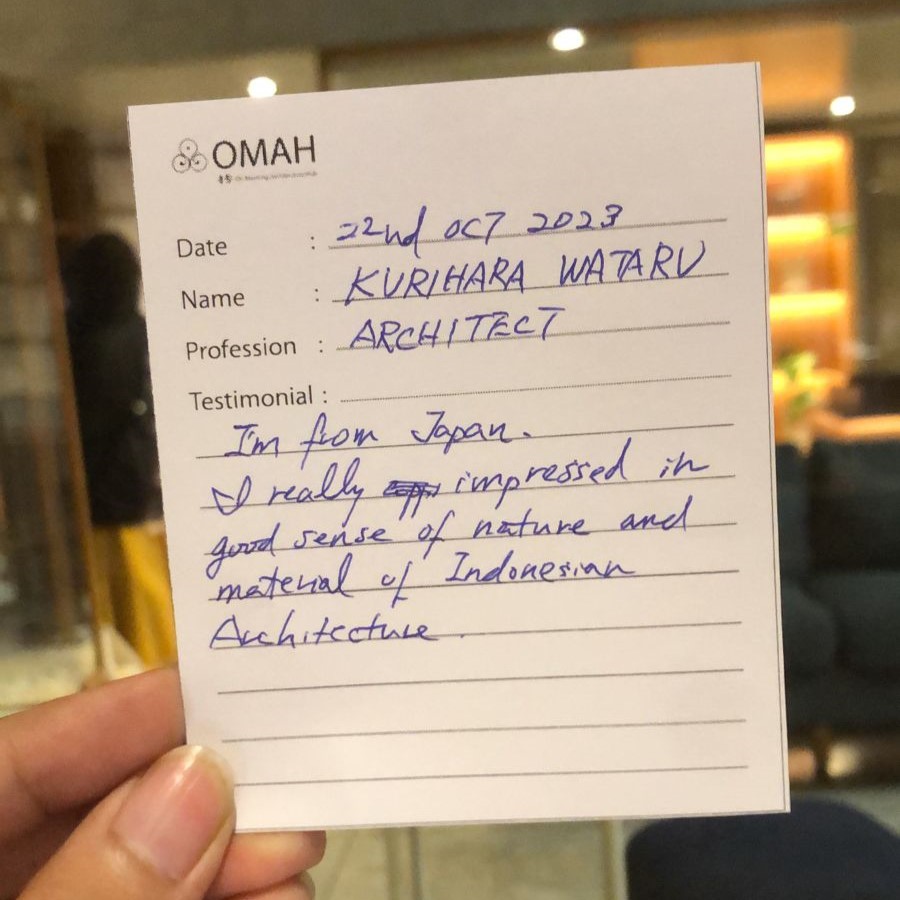 OMAH
Date : 22nd OCT 2023
Name : KURIHARA WATARU
Profession : ARCHITECT
Testimonial :
I'm from Japan.
I really impressed in
good sense of nature and
material of Indonesian
Architecture.